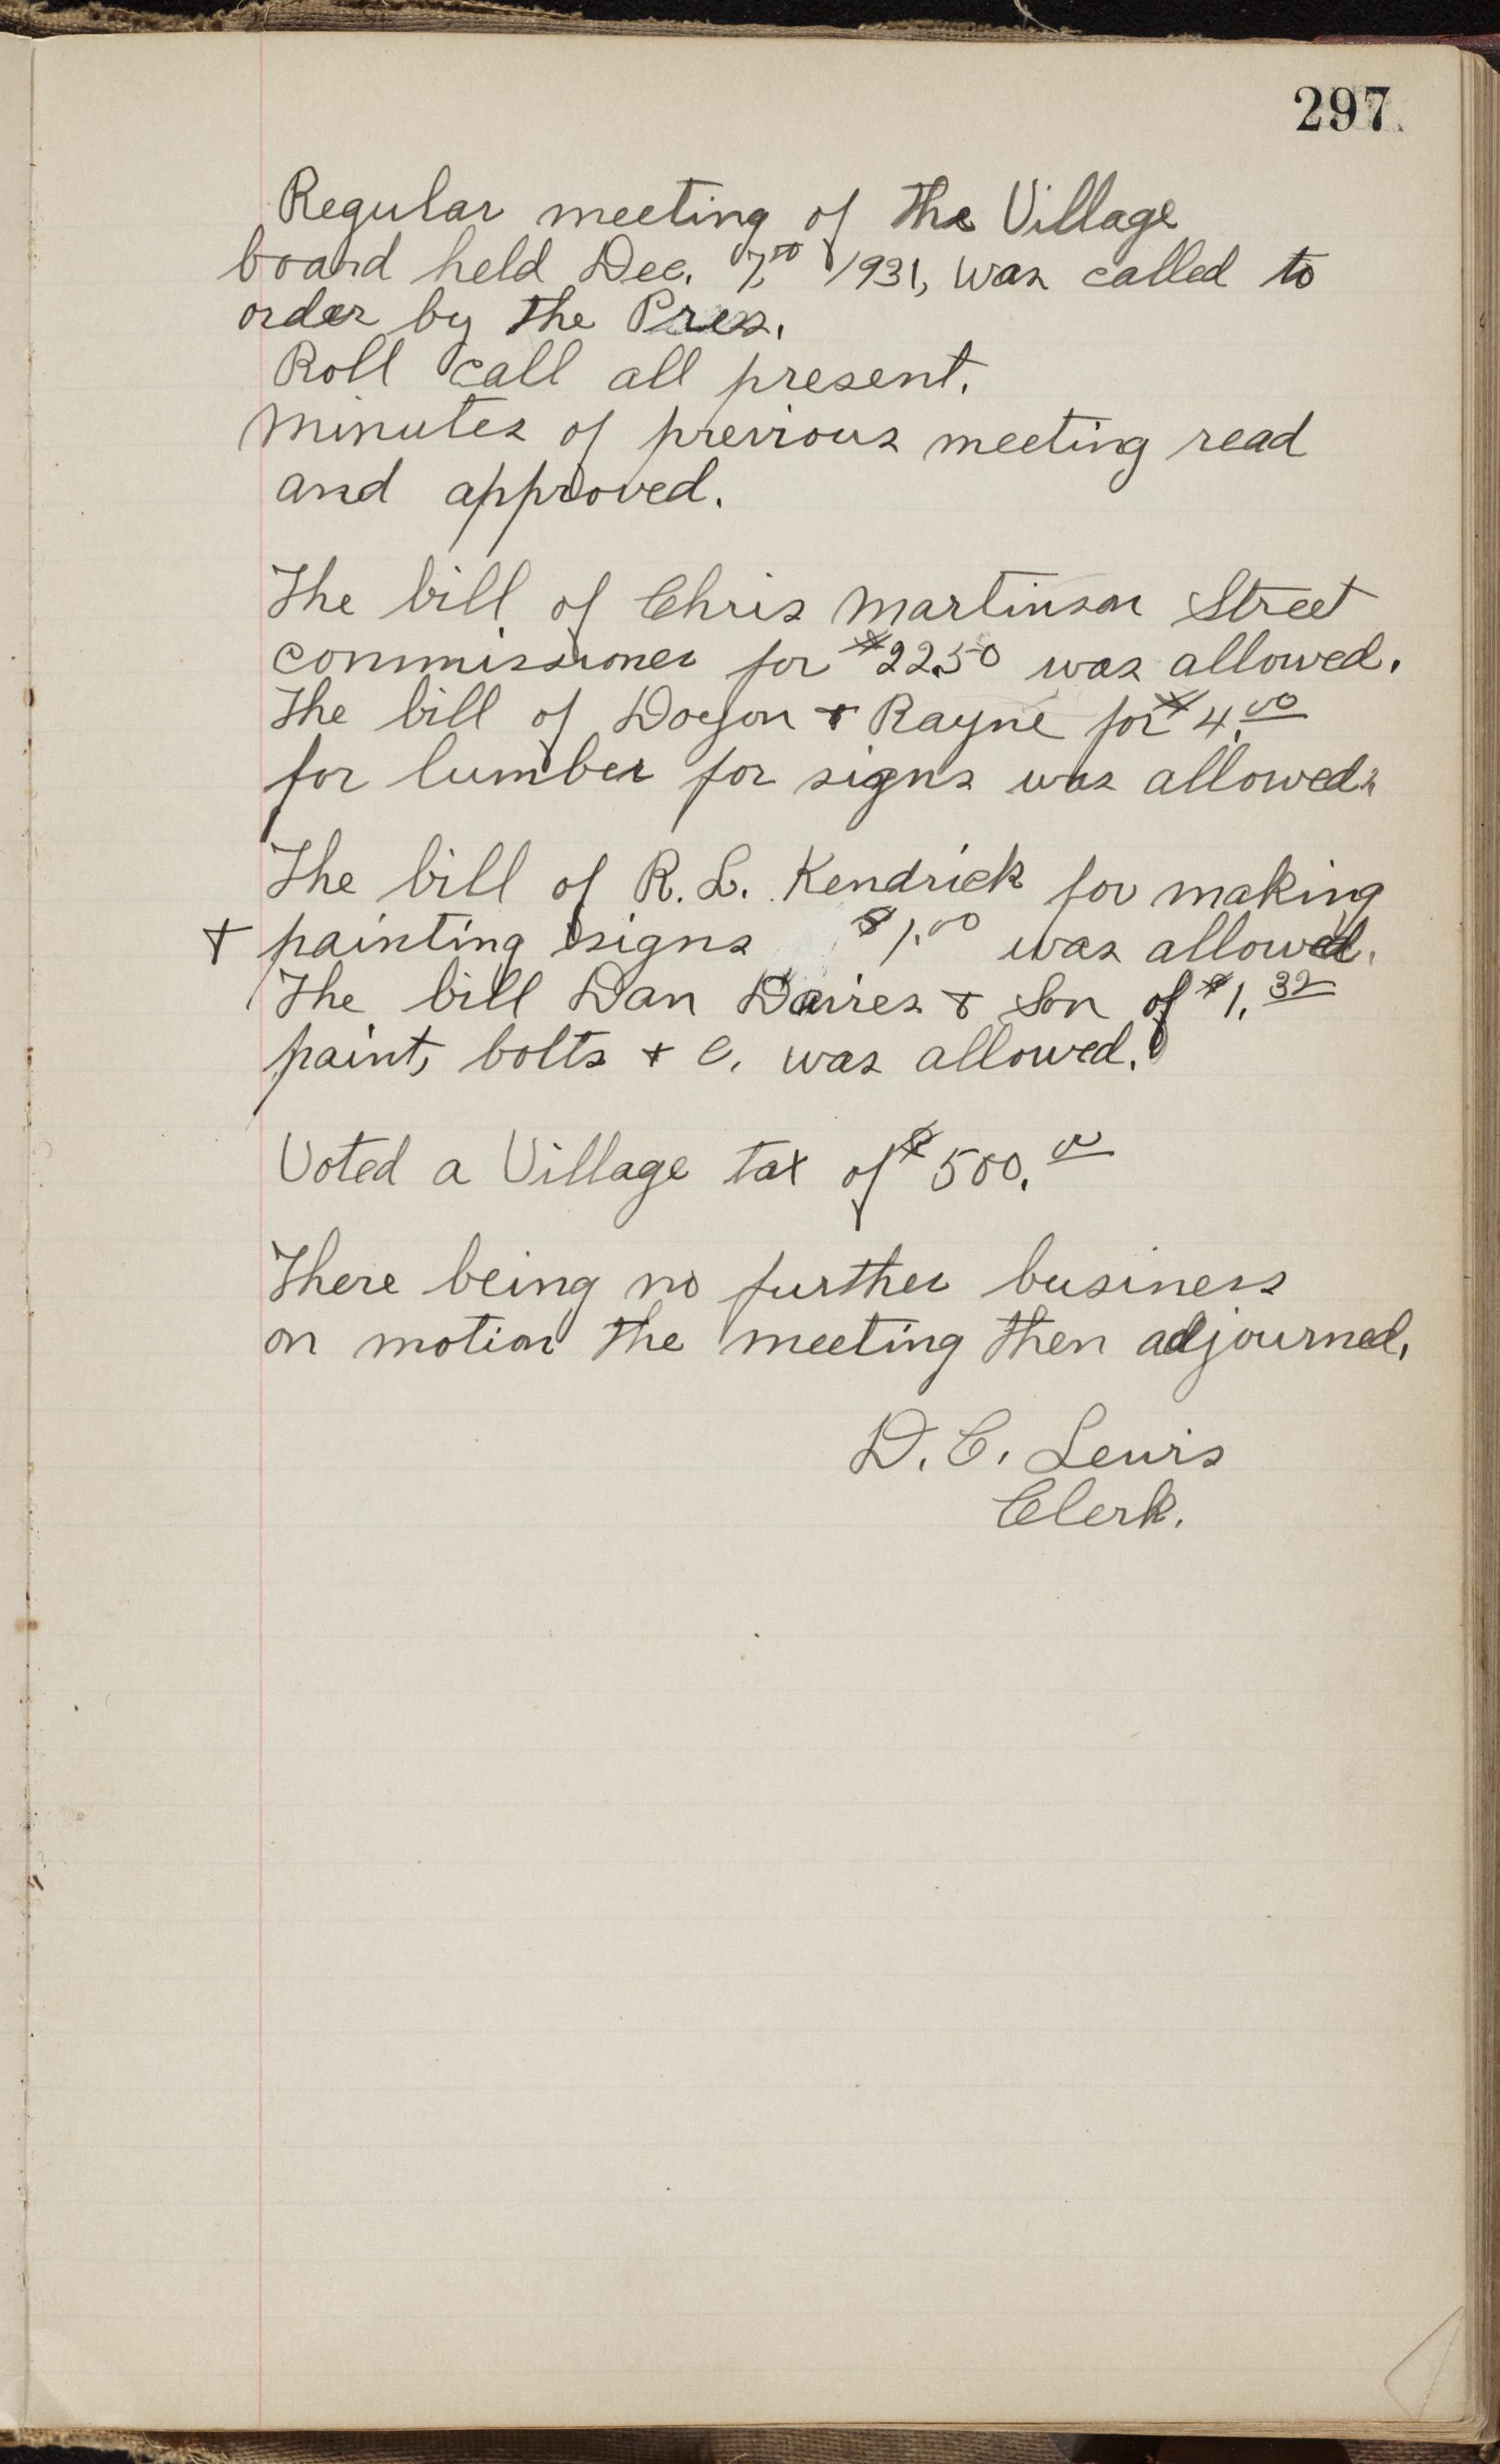 297
Regular meeting of the Village
board held Dec. 7, 1931, was called to
order by the Pres.
Roll call all present.
Minutes of previous meeting read
and approved.
The bill of Chris Martinson Street
commissioner for $22.50 was allowed.
The bill of & Rayne for $4.00
for lumber for signs was allowed.
The bill of R. L. Kendrick for making
& painting signs $1.00 was allowed.
The bill Dan Davies & Son of $1.32
paint, bolts & c. was allowed.
Voted a Village tax of $500.00
There being no further business
on motion the meeting then adjourned.
D. C. Lewis
Clerk.